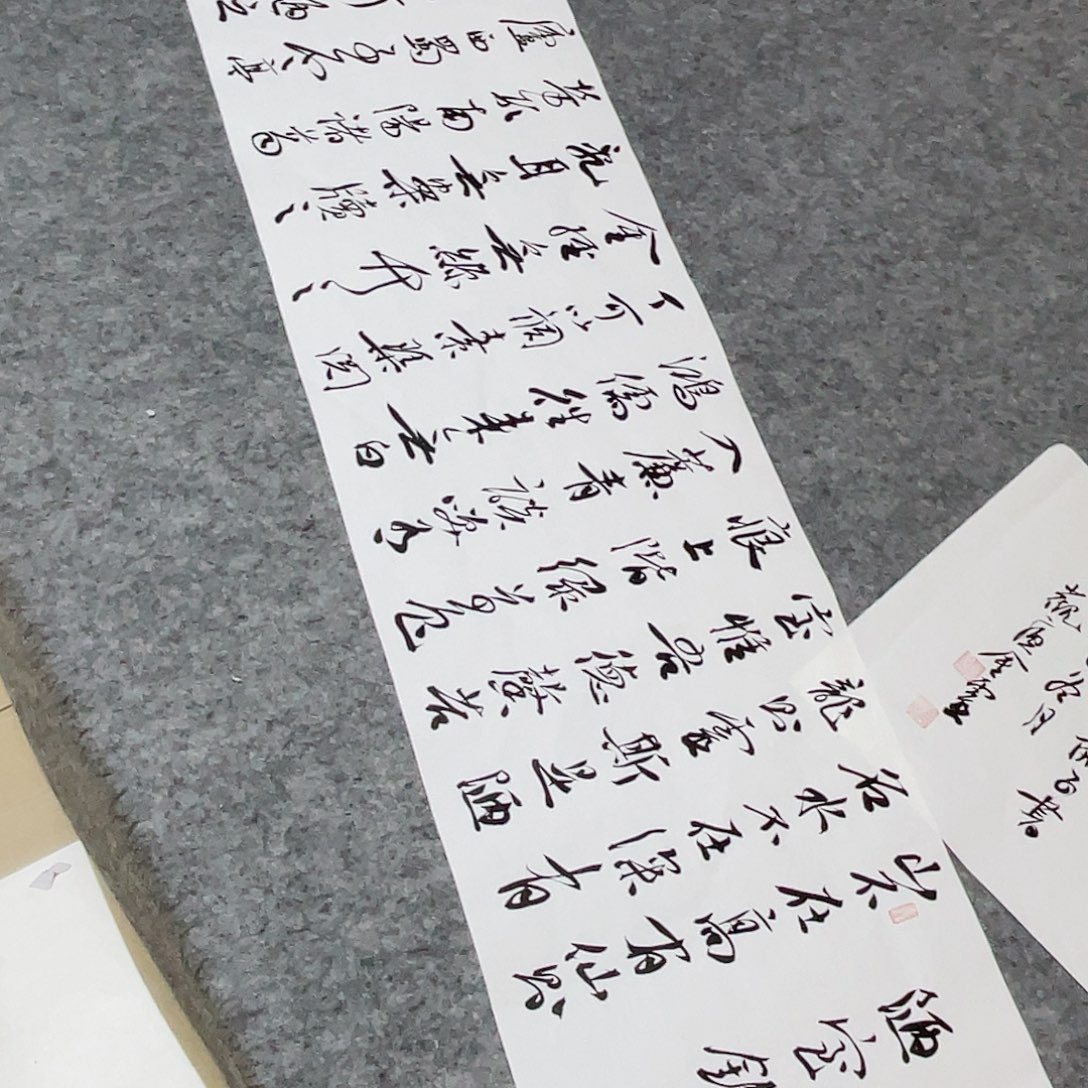 陋室銘
山不在高有仙则
名水不在深有
龍则靈斯是陋
室惟吾德馨苔
痕上階绿草色
入簾青談笑有
鴻儒往来無白
丁可以調素琴閱
金經無絲竹之
乱耳無案牘之
勞形南陽諸葛
廬西蜀子雲亭
陋之